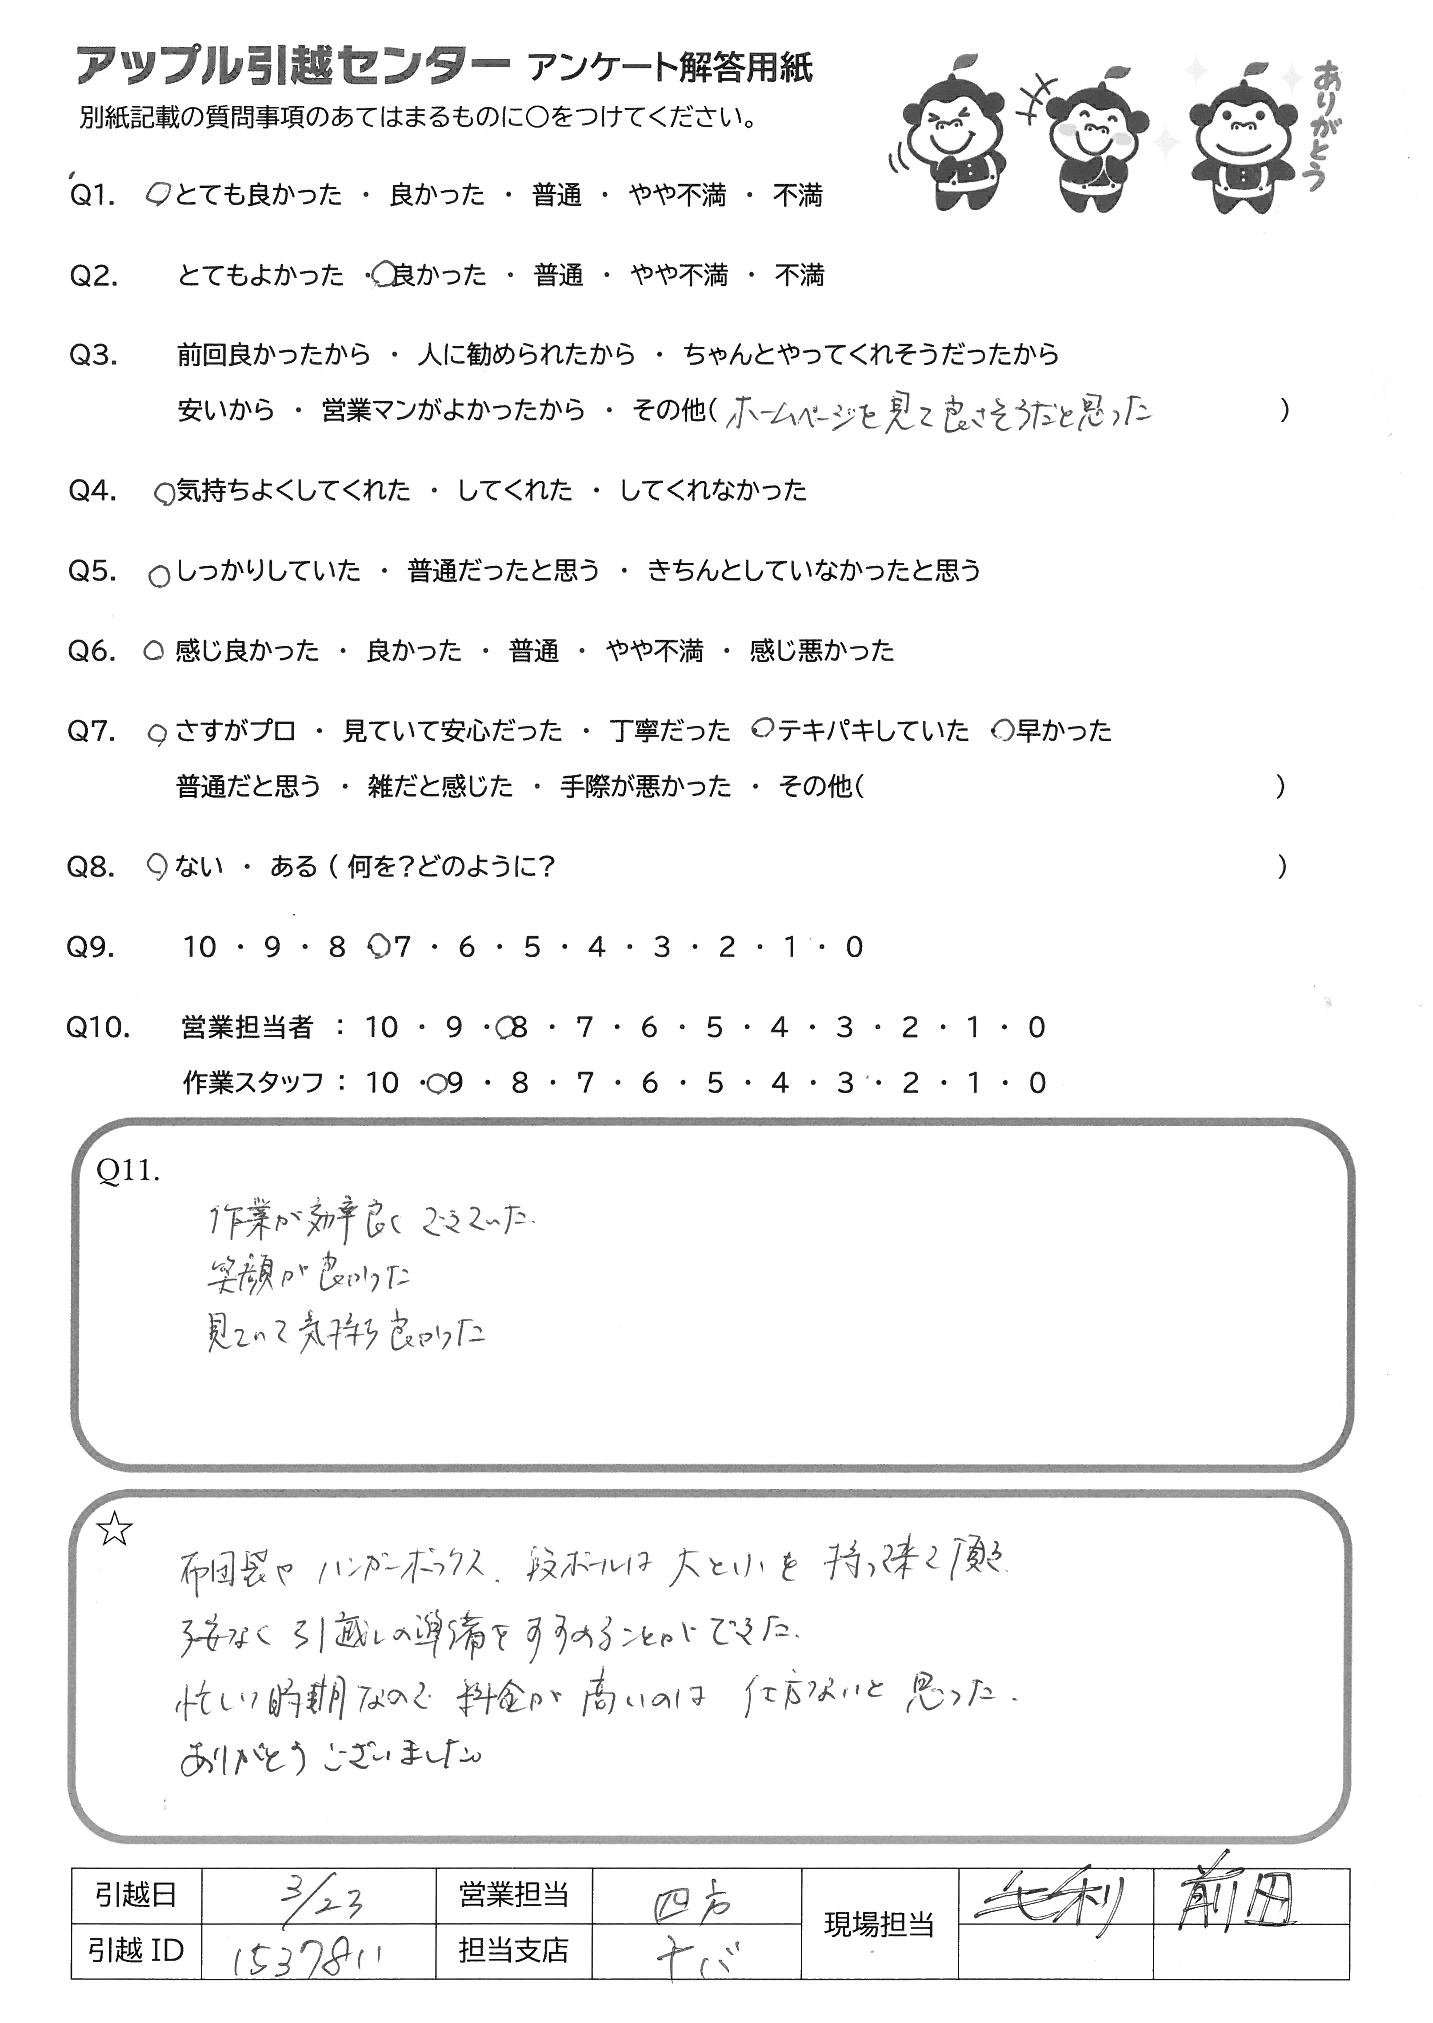 アップル引越センター アンケート解答用紙
ありがとう
別紙記載の質問事項のあてはまるものに○をつけてください。
Q1. ○とても良かった ・ 良かった ・ 普通 ・ やや不満 ・ 不満
Q2. とてもよかった ・○良かった ・ 普通 ・ やや不満 ・ 不満
Q3. 前回良かったから ・ 人に勧められたから ・ ちゃんとやってくれそうだったから
安いから ・ 営業マンがよかったから ・ その他( ホームページを見て良さそうだと思った )
Q4. ○気持ちよくしてくれた ・ してくれた ・ してくれなかった
Q5. ○しっかりしていた ・ 普通だったと思う ・ きちんとしていなかったと思う
Q6. ○ 感じ良かった ・ 良かった ・ 普通 ・ やや不満 ・ 感じ悪かった
Q7. ○さすがプロ ・ 見ていて安心だった ・ 丁寧だった ○テキパキしていた ○早かった
普通だと思う ・ 雑だと感じた ・ 手際が悪かった ・ その他( )
Q8. ○ない ・ ある ( 何を?どのように? )
Q9. 10 ・ 9 ・ 8 ○7 ・ 6 ・ 5 ・ 4 ・ 3 ・ 2 ・ 1 ・ 0
Q10. 営業担当者 : 10 ・ 9 ・○8 ・ 7 ・ 6 ・ 5 ・ 4 ・ 3 ・ 2 ・ 1 ・ 0
作業スタッフ : 10 ・○9 ・ 8 ・ 7 ・ 6 ・ 5 ・ 4 ・ 3 ・ 2 ・ 1 ・ 0
Q11.
作業が効率良くできていた.
笑顔が良かった
見ていて気持ち良かった
☆
布団袋や ハンガーボックス、段ボールは 大と小を 持って来て頂き
不安なく 引越しの準備をすすめることができた.
忙しい時期なので 料金が 高いのは 仕方ないと 思った.
ありがとうございました。
引越日 3/23 営業担当 四方 現場担当 毛利 前田
引越 ID 1537811 担当支店 千バ